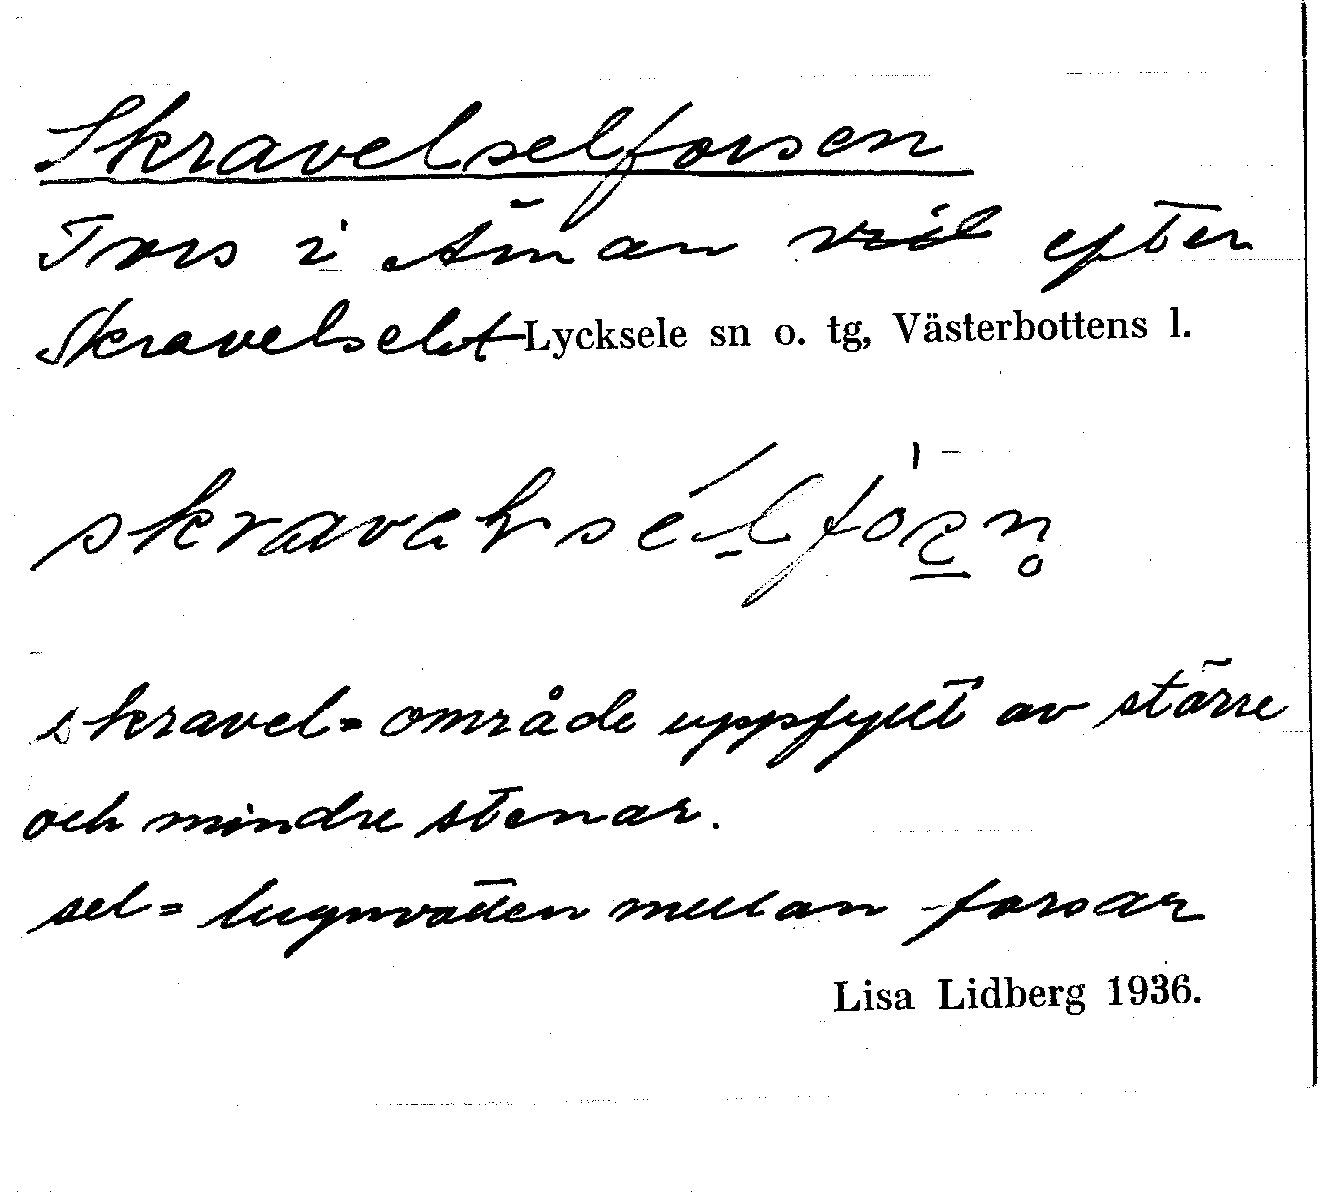 Skravelselforsen
Fors i Åman vid efter
Skravelselet Lycksele sn o. tg, Västerbottens l.
skravel = område uppfyllt av större
och mindre stenar.
sel = lugnvatten mellan forsar
Lisa Lidberg 1936.